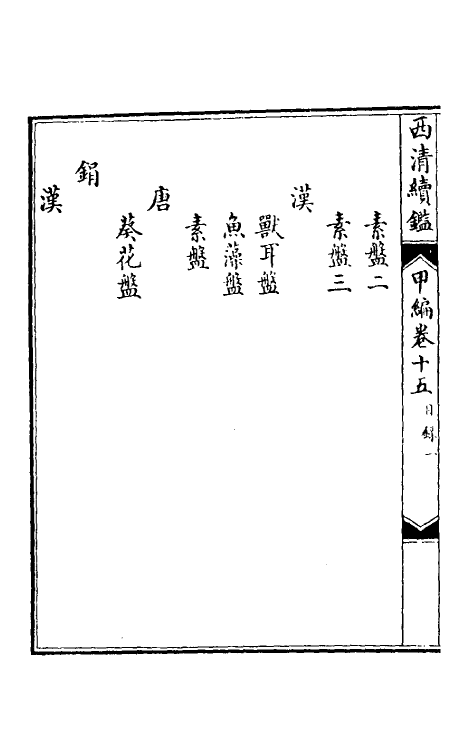 西清續鑑
甲編卷十五
目錄一
素盤二
素盤三
漢
獸耳盤
魚藻盤
素盤
唐
葵花盤
鋗
漢